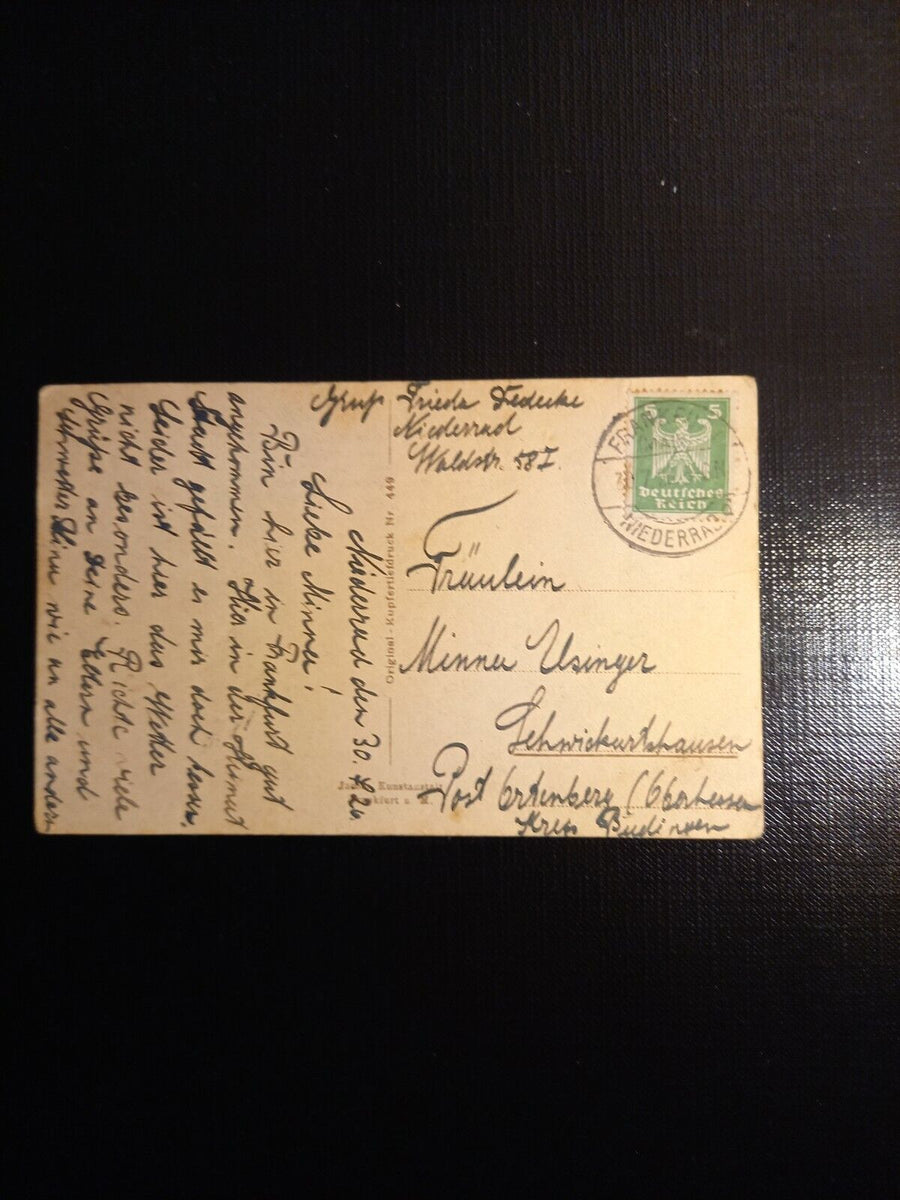 Niederrad den 30. 4. 26
Liebe Minna!
Bin hier in Frankfurt gut
angekommen. Hier in der
Stadt gefällt es mir doch besser.
Leider ist hier das Wetter
nicht besonders. Richte viele
Grüße an Deine Eltern und
wie an alle andern
Gruß Frieda
Niederrad
Waldstr. 58 I.
Fräulein
Minna Usinger
Schwickartshausen
Post Ortenberg (Oberhessen
Kreis Büdingen
Original-Kupfertiefdruck Nr. 449
5 5
Deutsches
Reich
NIEDERRAD